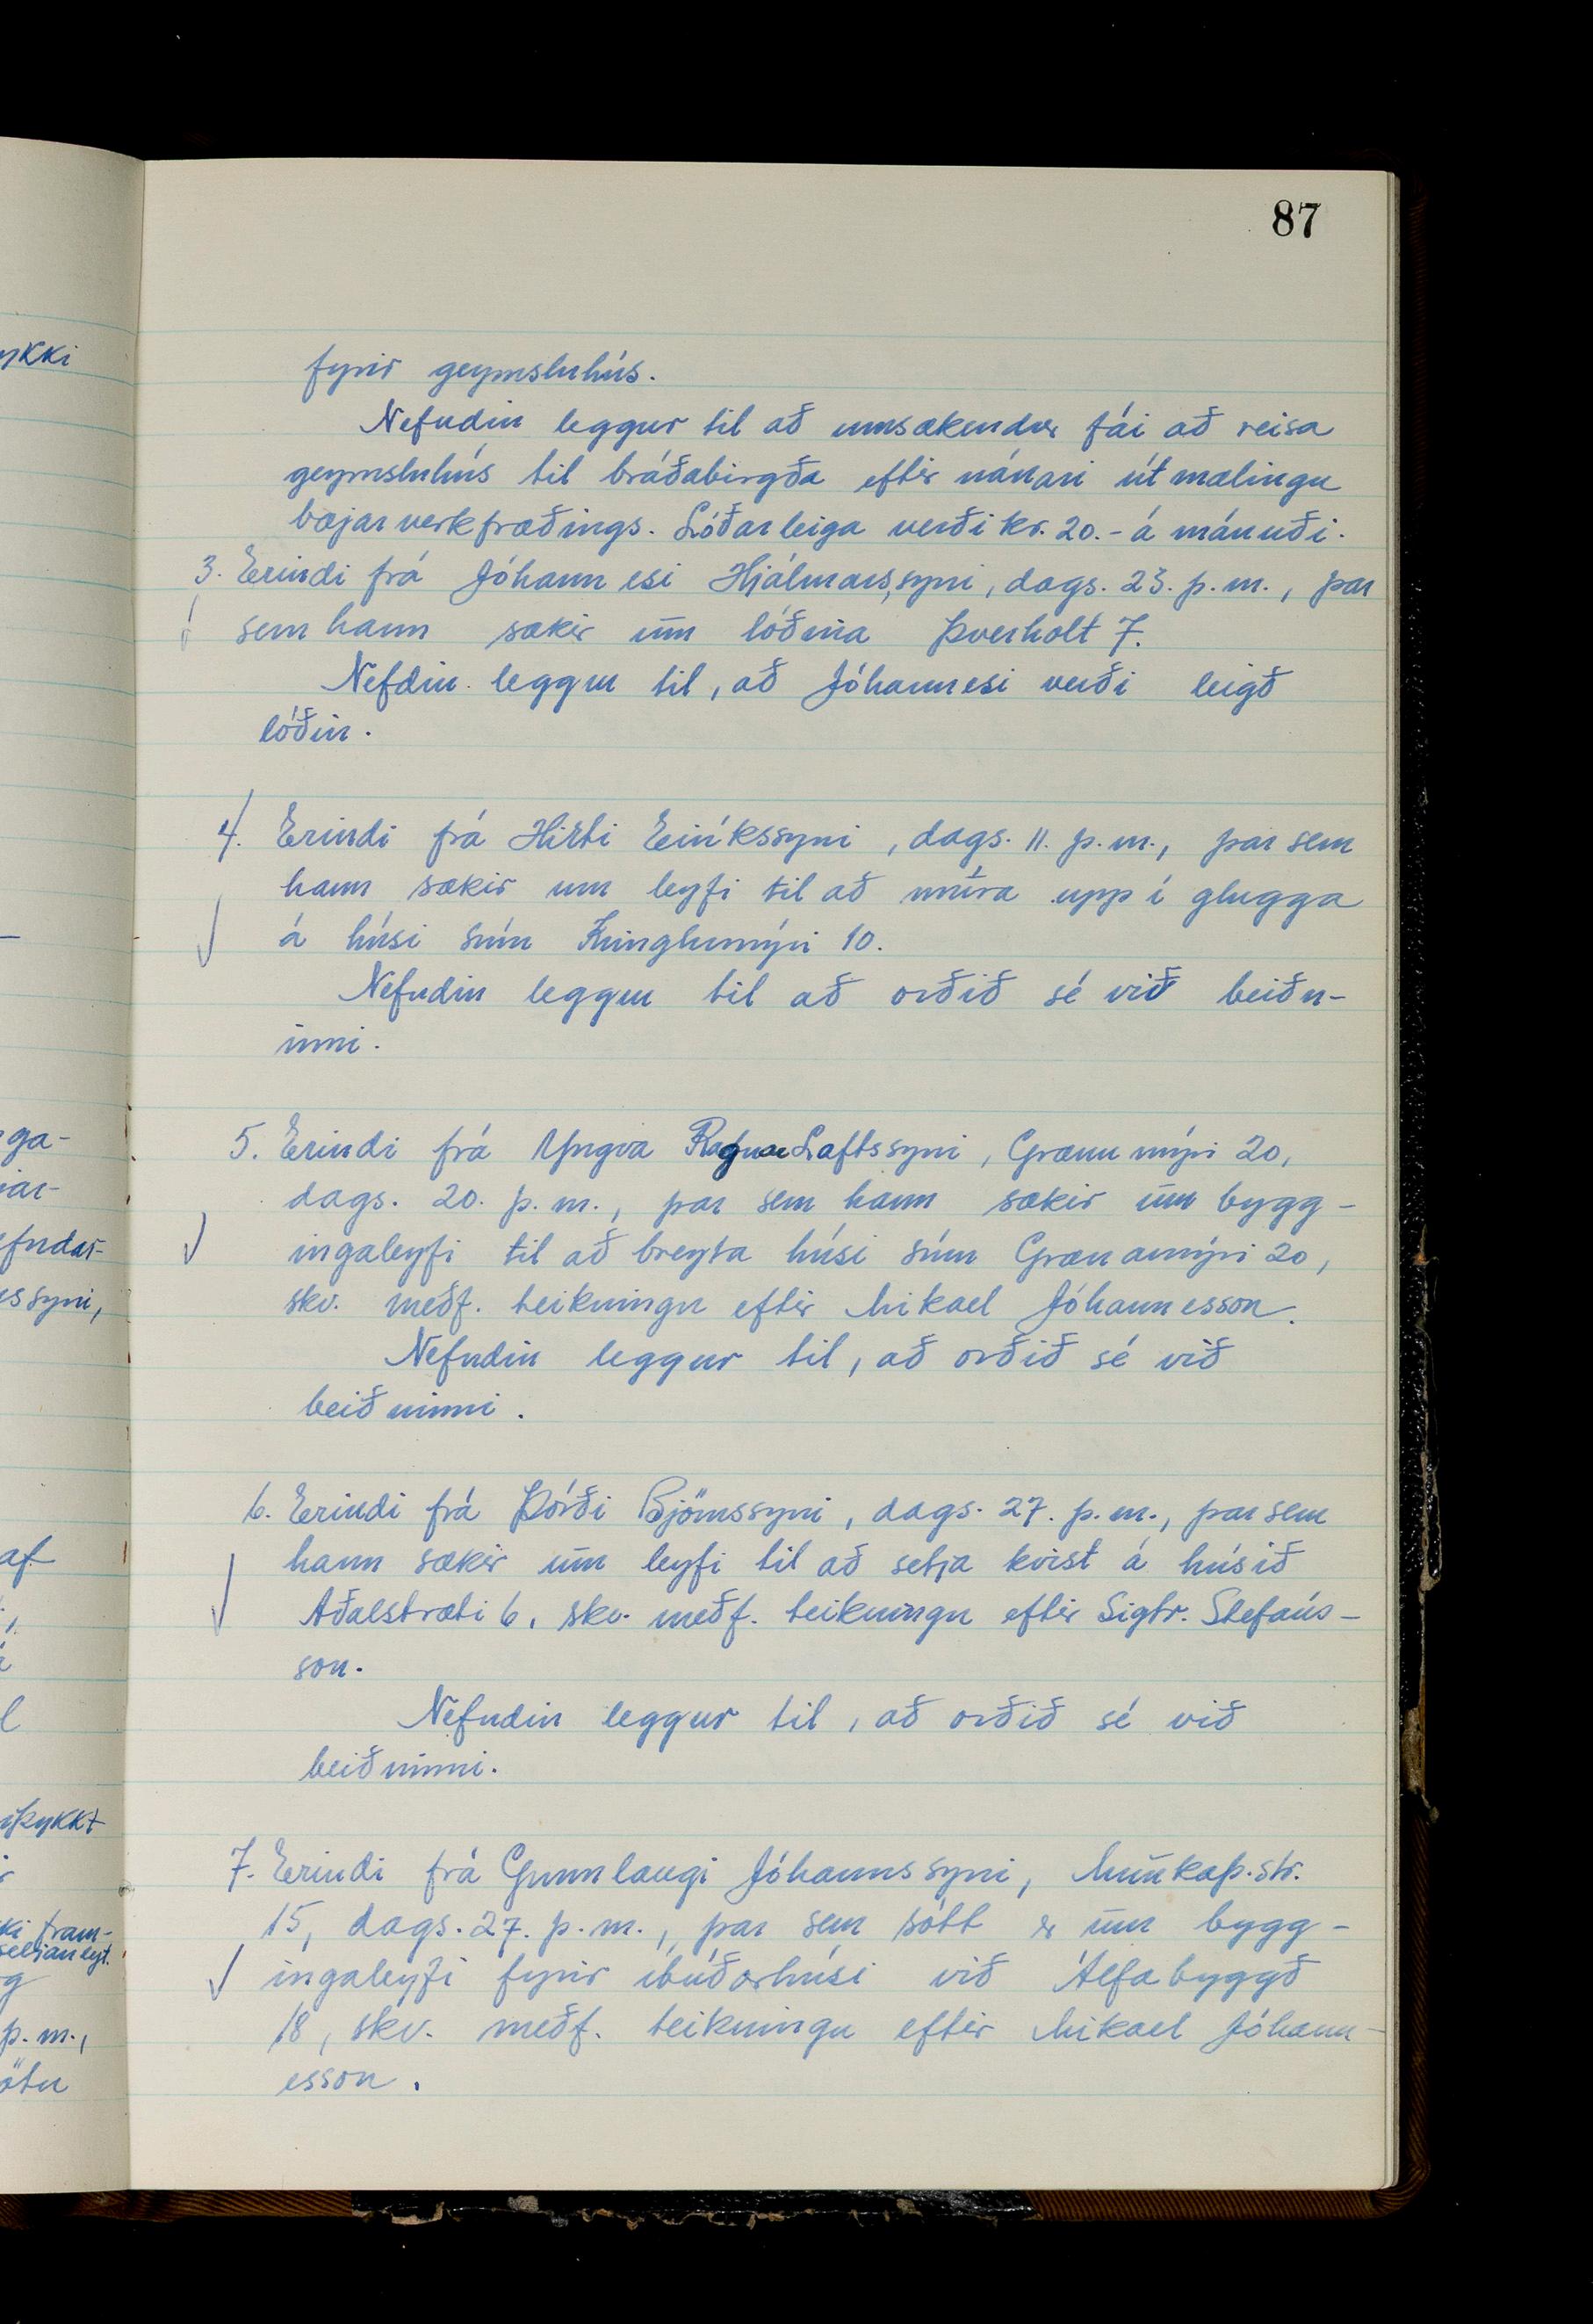 87
fyrir geymsluhús.
Nefndin leggur til að umsækendur fái að reisa
geymsluhús til bráðabirgða eftir nánari útmælingu
bæjarverkfræðings. Lóðarleiga verði kr. 20.- á mánuði.
3. Erindi frá Jóhannesi Hjálmarssyni, dags. 23. þ.m., þar
sem hann sækir um lóðina Þverholt 7.
Nefdin leggur til, að Jóhannesi verði leigð
lóðin.
4. Erindi frá Hirti Eiríkssyni, dags. 11. þ.m., þar sem
hann sækir um leyfi til að múra upp í glugga
á húsi sínu Kringlumýri 10.
Nefndin leggur til að orðið sé við beiðn-
inni.
5. Erindi frá Yngva Ragnar Loftssyni, Grænumýri 20,
dags. 20. þ.m., þar sem hann sækir um bygg-
ingaleyfi til að breyta húsi sínu Grænamýri 20,
skv. meðf. teikningu eftir Mikael Jóhannesson.
Nefndin leggur til, að orðið sé við
beiðninni.
6. Erindi frá Þórði Björnssyni, dags. 27. þ.m., þar sem
hann sækir um leyfi til að setja kvist á húsið
Aðalstræti 6, skv. meðf. teikningu eftir Sigtr. Stefáns-
son.
Nefndin leggur til, að orðið sé við
beiðninni.
7. Erindi frá Gunnlaugi Jóhannssyni, Munkaþ.str.
15, dags. 27. þ.m., þar sem sótt er um bygg-
ingaleyfi fyrir íbúðarhúsi við Álfabyggð
18, skv. meðf. teikningu eftir Mikael Jóhann-
esson.